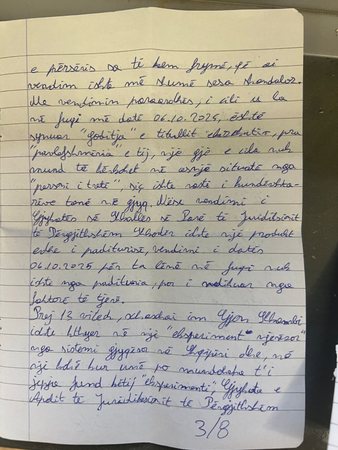 e përsëris sa të kem frymë, që ai
vendim ishte më shumë sesa skandaloz.
Me vendimin paraardhës, i cili u la
në fuqi më datë 06.10.2025, është
synuar "goditja" e titullit ekzekutiv, pra
"pavlefshmëria" e tij, një gjë e cila nuk
mund të kërkohet në asnjë situatë nga
"personi i tretë", siç ishte rasti i kundërshta-
rëve tanë në gjyq. Nëse vendimi i
Gjykatës së Shkallës së Parë të Juridiksionit
të Përgjithshëm Shkodër ishte një produkt
edhe i paditurisë, vendimi i datës
06.10.2025 për ta lënë në fuqi nuk
ishte nga padituria, por i motivuar nga
faktorë të tjerë.
Prej 13 vitesh, im Gjon
është kthyer në një "eksperiment" njerëzor
nga sistemi gjyqësor në Shqipëri dhe, në
një kohë kur unë po mundohem t'i
jap fund këtij "eksperimenti", Gjykata e
Apelit të Juridiksionit të Përgjithshëm
3/8